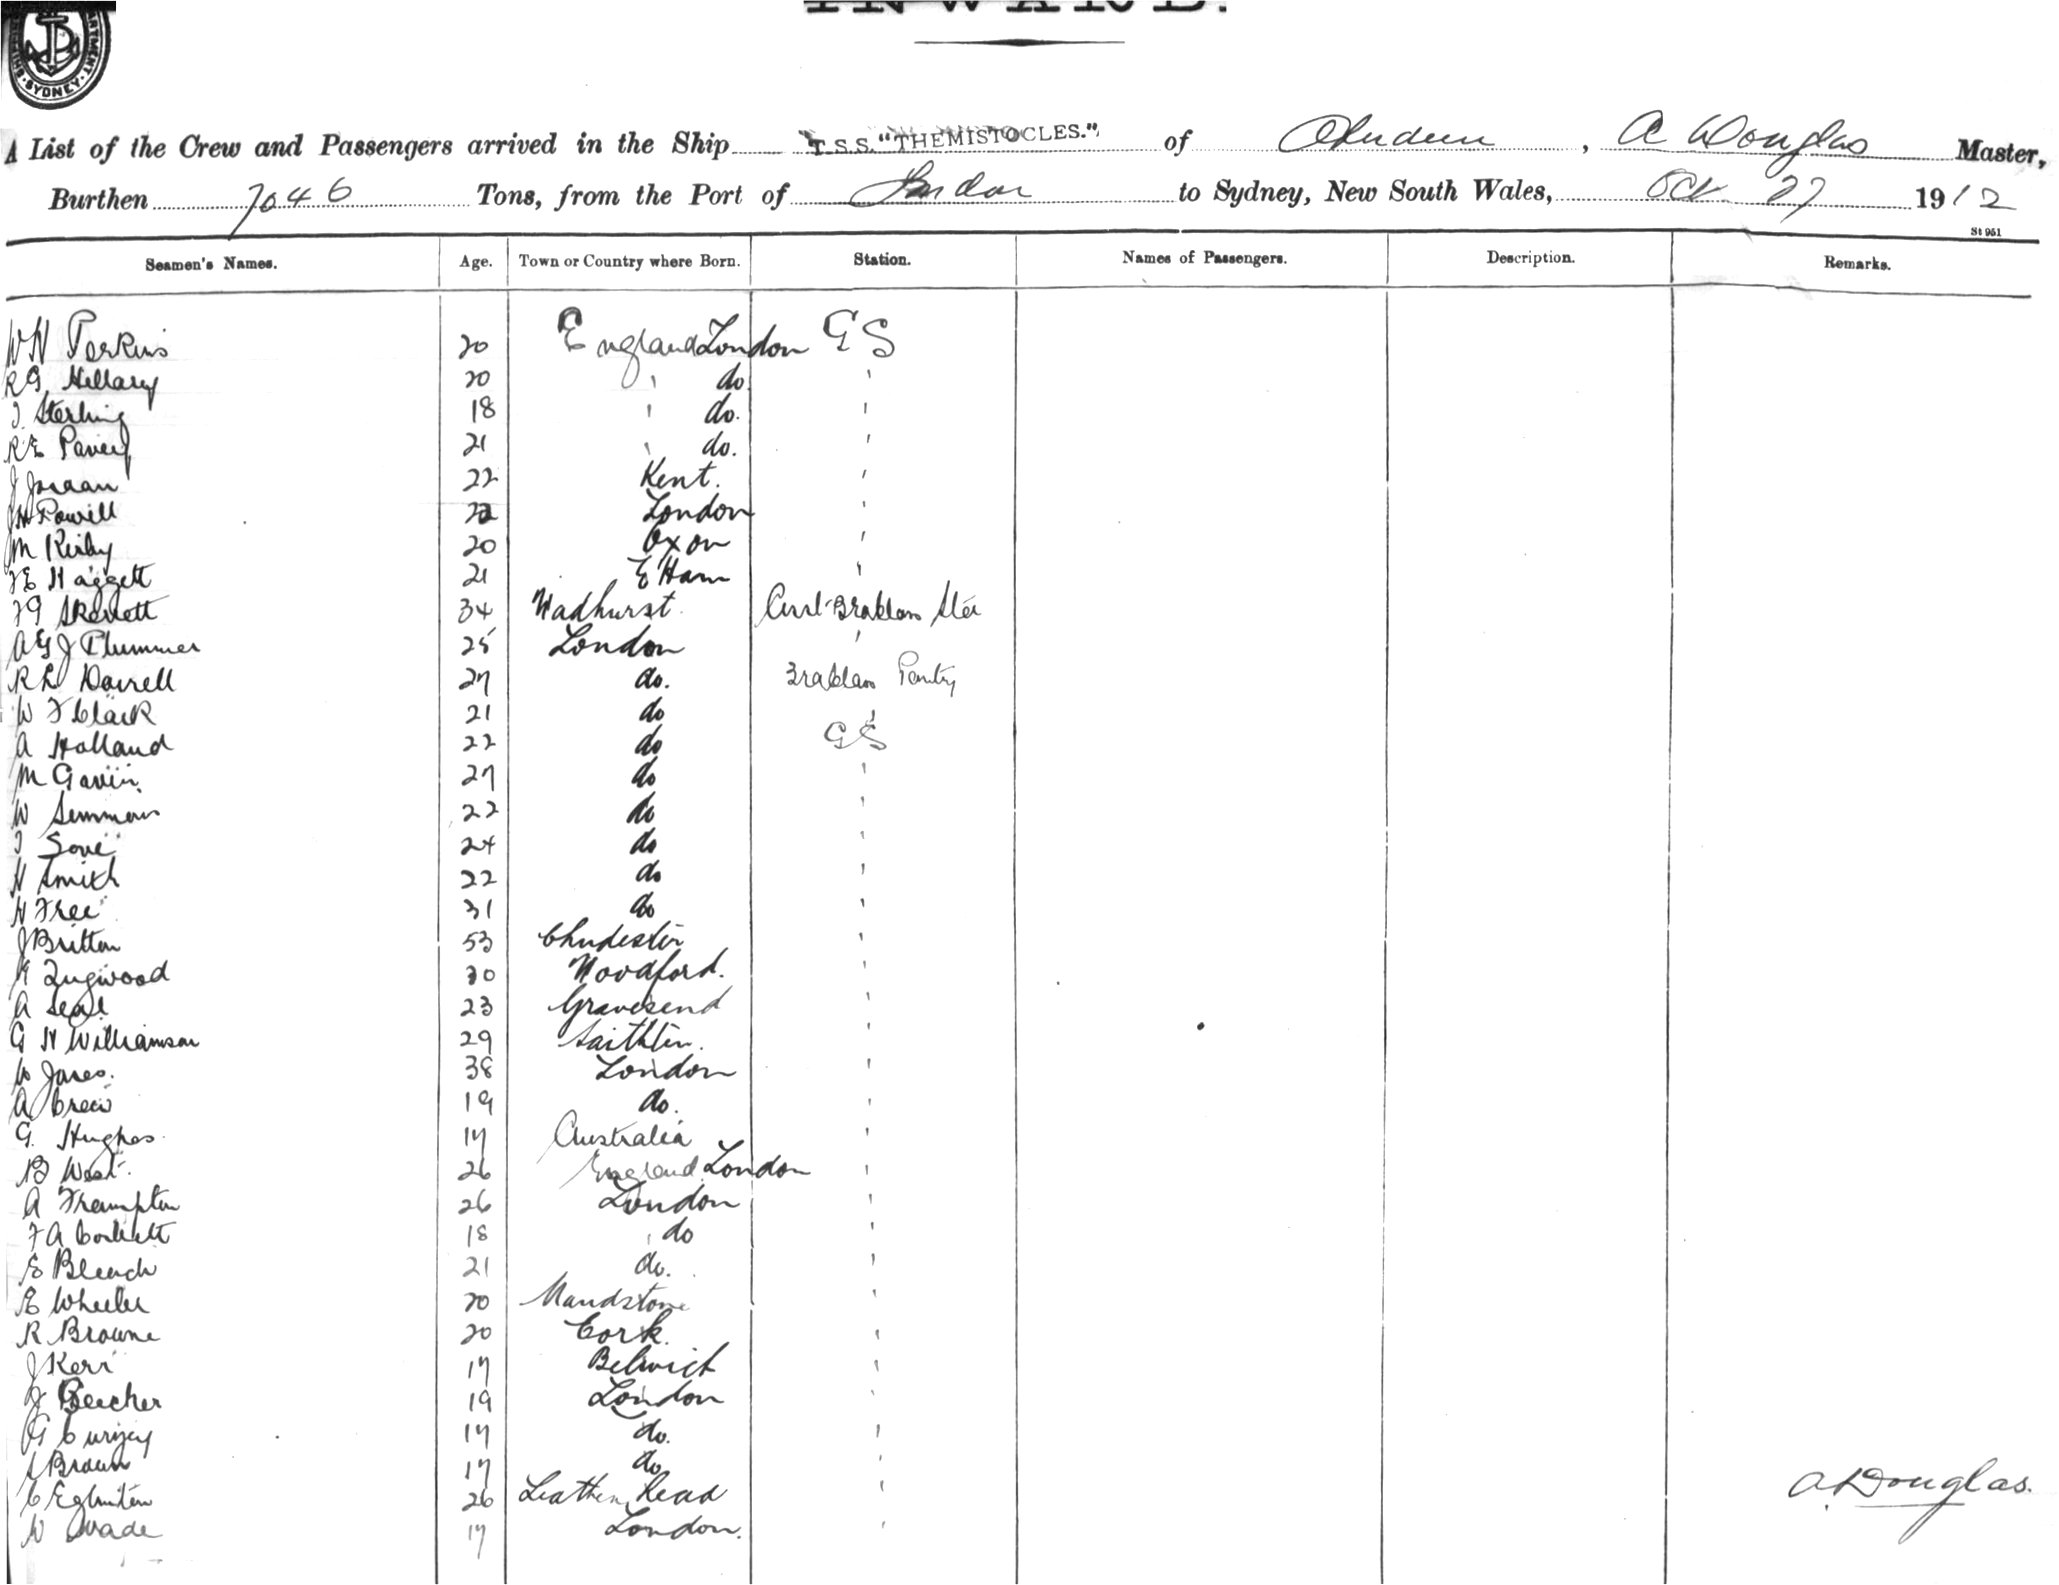 INWARD.
SYDNEY
A List of the Crew and Passengers arrived in the Ship T.S.S. "THEMISTOCLES." of Aberdeen, A Douglas Master,
Burthen 7046 Tons, from the Port of London to Sydney, New South Wales, Oct 27 1912
St 951
Seamen's Names. Age. Town or Country where Born. Station. Names of Passengers. Description. Remarks.
W H Perkins 20 England London G S
R G Hillary 20 " do. "
J. Sterling 18 " do. "
R E Pavey 21 " do. "
J Jordan 22 Kent. "
J H Powell 22 London "
M Kirby 20 Oxon "
F E Haggett 21 E Ham "
F G Skerrett 34 Wadhurst. Asst. Ste
A G J Plummer 25 London "
R L Darrell 27 do. Pantry
W F Clark 21 do "
A Holland 22 do G S
M Gavin. 27 do "
W Semmons 22 do "
J Sove 24 do "
H Smith 22 do "
H Free 31 do "
J Britton 53 "
Zugwood 20 Woodford. "
A Seal 23 Gravesend "
G H Williamson 29 "
W Jones. 38 London "
A Crew 19 do. "
G. Hughes. 17 Australia "
B West. 26 England London "
A Frampton 26 London "
F A Corbett 18 " do "
E Bleach 21 do. "
E Wheeler 20 Maidstone "
R Browne 20 Cork. "
J Kerr 17 "
J Beecher 19 London "
G 17 do. "
S Brown 17 do "
C Eglinton 26 Leather head " A. Douglas.
W Wade 17 London. "